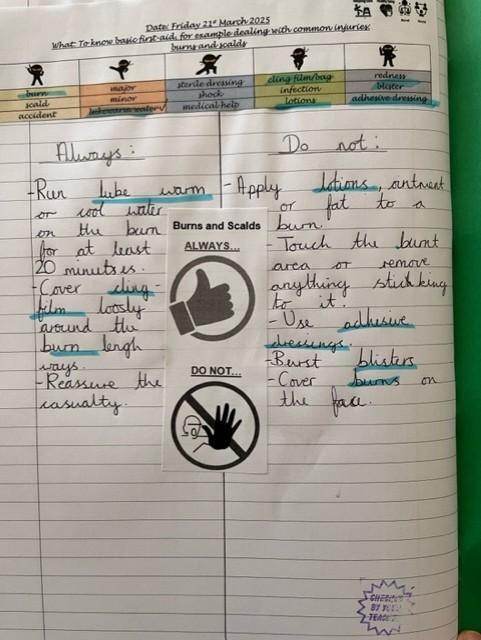 Date: Friday 21st March 2025
What: To know basic first-aid, for example dealing with common injuries:
burns and scalds
burn
scald
accident
major
minor
lukewarm water
sterile dressing
shock
medical help
cling film/bag
infection
lotions
redness
blister
adhesive dressing
Always:
-Run lube warm
or cool water
on the burn
for at least
20 minutes.
-Cover cling-
film loosly
around the
burn lengh
ways.
-Reassure the
casualty.
Burns and Scalds
ALWAYS...
DO NOT...
Do not:
-Apply lotions, ointment
or fat to a
burn.
-Touch the burnt
area or remove
anything stickking
to it.
-Use adhesive
dressings.
-Burst blisters
-Cover burns on
the face.
CHECKED
BY YOUR
TEACHER